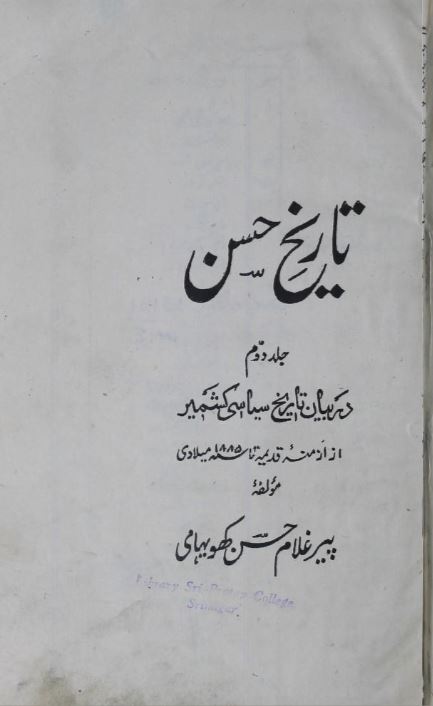 تاریخِ حسن
جلد دوّم
در بیان تاریخ سیاسی کشمیر
از ازمنۂ قدیمہ تا سنہ ۱۸۸۵ میلادی
مؤلفۂ
پیر غلام حسن کھویہامی
Library Sri Pratap College
Srinagar